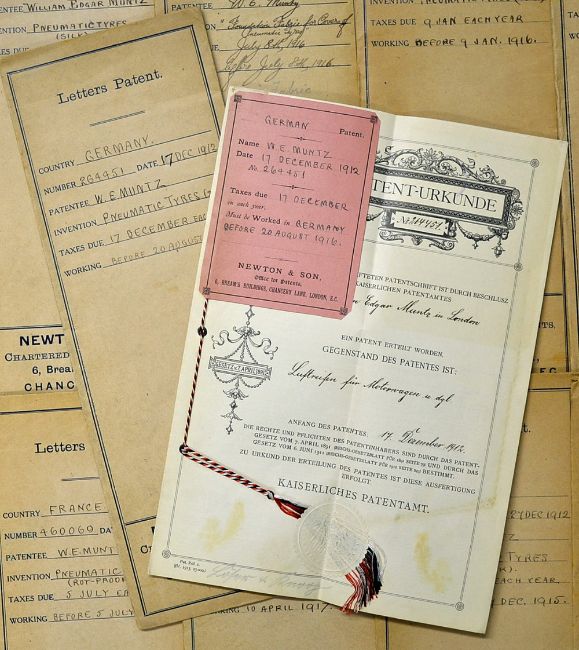 PATENTEE WILLIAM EDGAR MUNTZ
INVENTION PNEUMATIC TYRES
(SILK)
PATENTEE W. E. Muntz
"Foundation Fabric for Covers of
Pneumatic Tyres"
July 8th, 1916
July 8th, 1916
TAXES DUE 9 JAN. EACH YEAR
WORKING BEFORE 9 JAN. 1916.
Letters Patent.
COUNTRY GERMANY.
NUMBER 264451 DATE 17 DEC 1912
PATENTEE W.E. MUNTZ
INVENTION PNEUMATIC TYRES
TAXES DUE 17 DECEMBER EAC
WORKING BEFORE 20 AUGUST
GERMAN Patent.
Name W. E. MUNTZ
Date 17 DECEMBER 1912
No. 264451
Taxes due 17 DECEMBER
in each year.
Must be Worked in GERMANY
BEFORE 20 AUGUST 1916.
NEWTON & SON,
Office for Patents,
6, BREAM'S BUILDINGS, CHANCERY LANE, LONDON, E.C.
TENT-URKUNDE
No. 264451.
EFTETEN PATENTSCHRIFT IST DURCH BESCHLUSZ
KAISERLICHEN PATENTAMTES
Edgar Muntz in London
EIN PATENT ERTEILT WORDEN.
GEGENSTAND DES PATENTES IST:
Luftreifen für Motorwagen u. dgl.
GESETZ V. 7. APRIL 1891
ANFANG DES PATENTES: 17. Dezember 1912.
DIE RECHTE UND PFLICHTEN DES PATENTINHABERS SIND DURCH DAS PATENT-
GESETZ VOM 7. APRIL 1891 (REICHS-GESETZBLATT FÜR 1891 SEITE 79) UND DURCH DAS
GESETZ VOM 6. JUNI 1911 (REICHS-GESETZBLATT FÜR 1911 SEITE 243) BESTIMMT.
ZU URKUND DER ERTEILUNG DES PATENTES IST DIESE AUSFERTIGUNG
ERFOLGT.
KAISERLICHES PATENTAMT.
NEWT
CHARTERED
6, Brea
CHANC
Letters
COUNTRY FRANCE
NUMBER 460060 DAT
PATENTEE W.E. MUNT
INVENTION PNEUMATIC
(ROT-PROO
TAXES DUE 5 JULY EA
WORKING BEFORE 5 JULY
10 APRIL 1917.
27 DEC 1912
TYRES
EACH YEAR,
DEC. 1915.